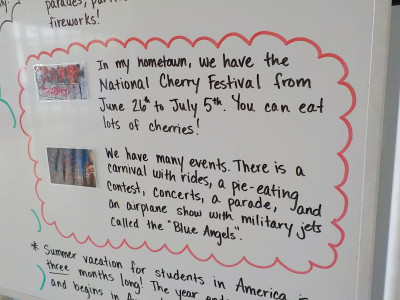 parades,
fireworks!
In my hometown, we have the
National Cherry Festival from
June 26th to July 5th. You can eat
lots of cherries!
We have many events. There is a
carnival with rides, a pie-eating
contest, concerts, a parade, and
an airplane show with military jets
called the "Blue Angels".
* Summer vacation for students in America is
three months long! The year
and begins in